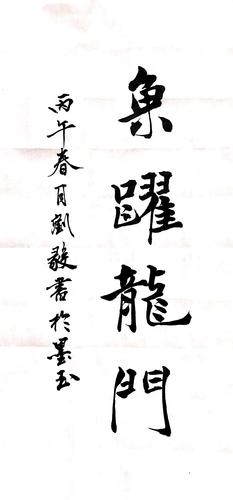 魚躍龍門
丙午春月劉毅書於墨玉